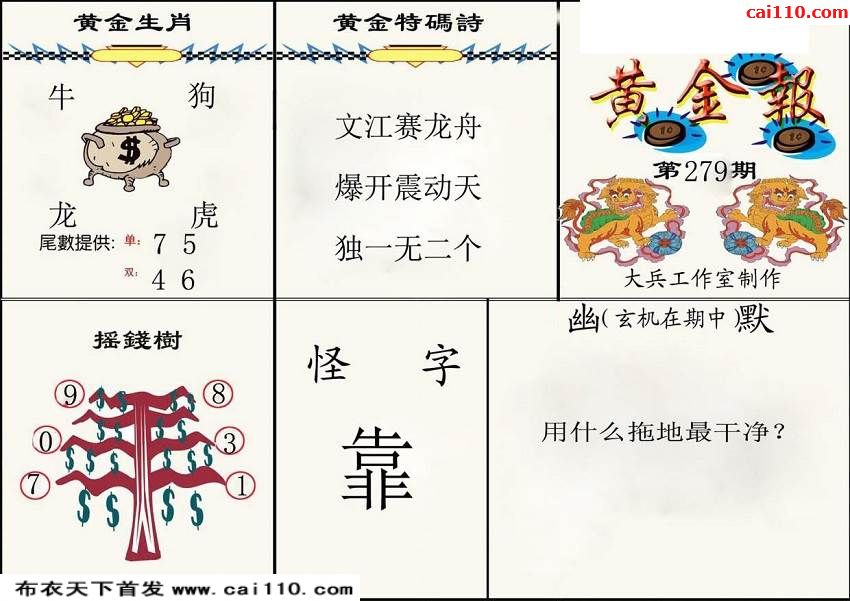 cai110.com
黄金生肖
牛 狗
$
龙 虎
尾數提供: 单: 7 5
双: 4 6
黄金特碼詩
文江赛龙舟
爆开震动天
独一无二个
黄金報
第279期
大兵工作室制作
摇錢樹
9 8
0 3
7 1
怪 字
靠
幽(玄机在期中)默
用什么拖地最干净?
布衣天下首发 www.cai110.com